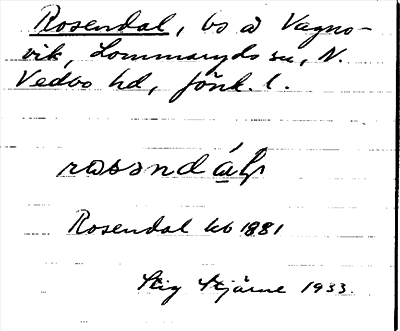 Rosendal, bs å Vagns-
vik, Lommaryds sn, N.
Vedbo hd, Jönk. l.
rosəndáɫ
Rosendal kb 1881
Stig Stjärne 1933.